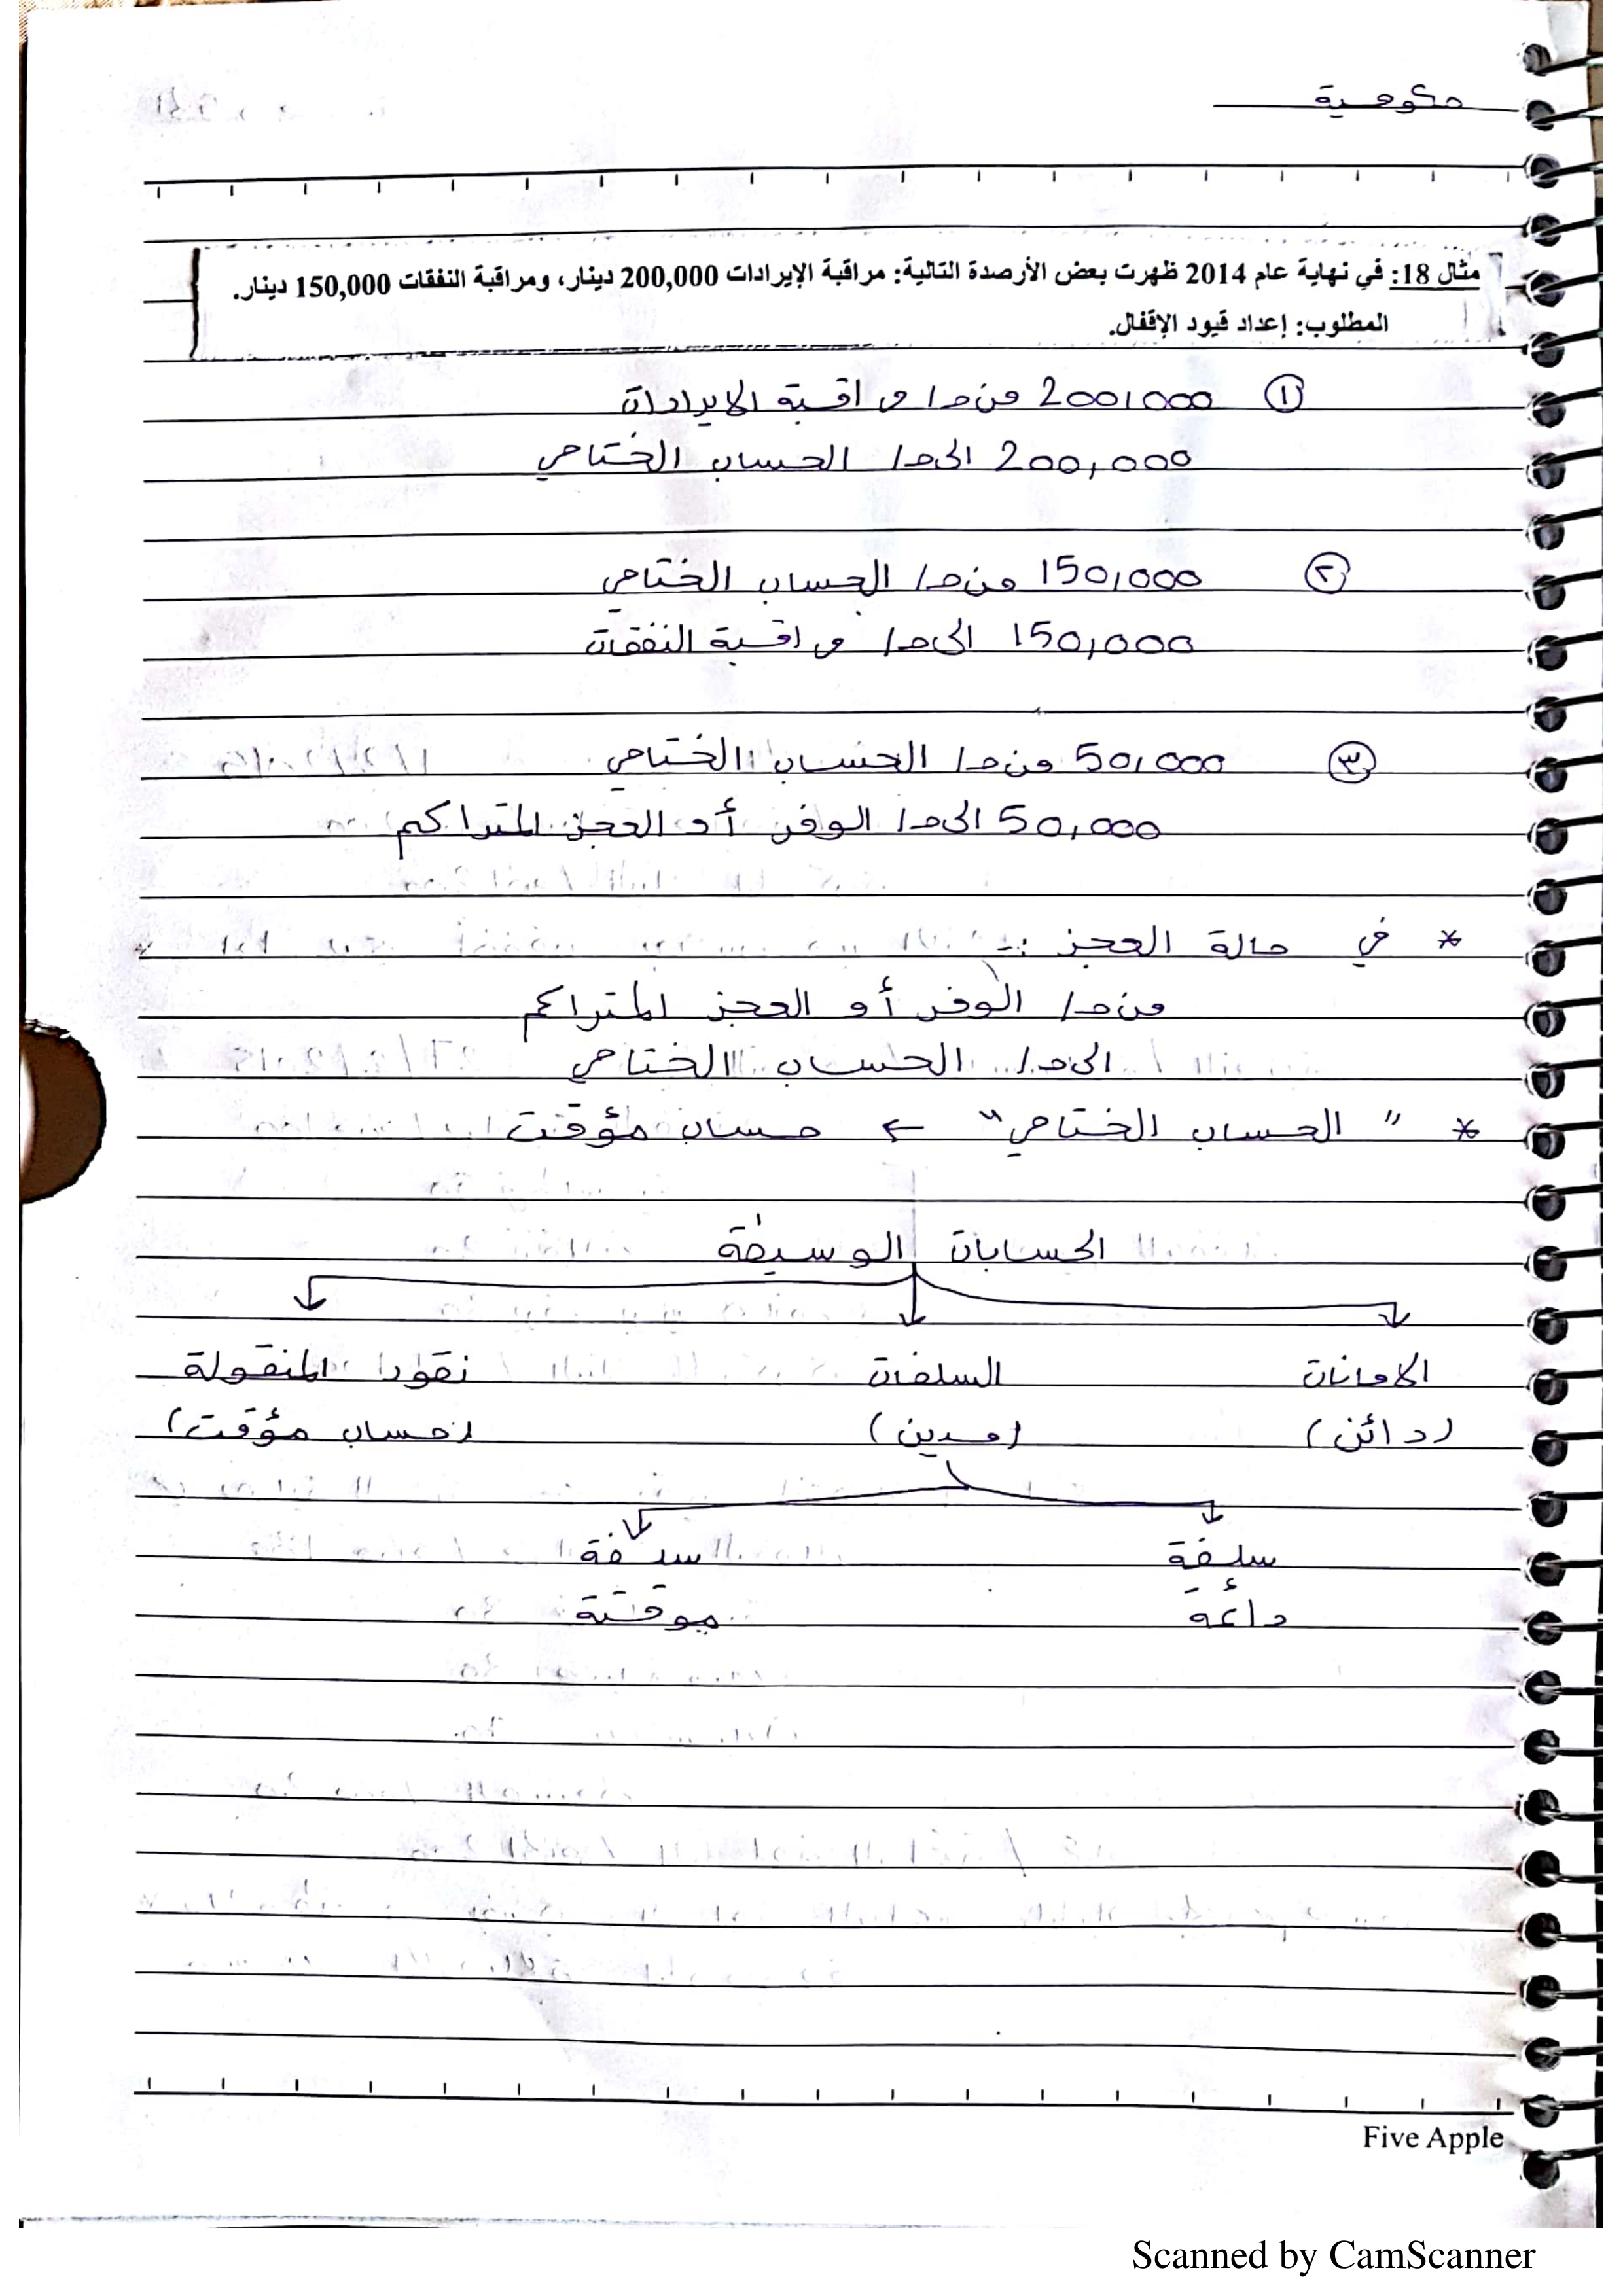 حكومية
مثال 18: في نهاية عام 2014 ظهرت بعض الأرصدة التالية: مراقبة الإيرادات 200,000 دينار، ومراقبة النفقات 150,000 دينار.
المطلوب: إعداد قيود الإقفال.
① 200,000 من حـ/ مراقبة الايرادات
200,000 الى حـ/ الحساب الختامي
② 150,000 من حـ/ الحساب الختامي
150,000 الى حـ/ مراقبة النفقات
③ 50,000 من حـ/ الحساب الختامي
50,000 الى حـ/ الوفر أو العجز المتراكم
* في حالة العجز :-
من حـ/ الوفر أو العجز المتراكم
الى حـ/ الحساب الختامي
* "الحساب الختامي" ← حساب مؤقت
الحسابات الوسيطة
الامانات السلفات نقود المنقولة
(دائن) (مدين) (حساب مؤقت)
سلفة سلفة
دائمة موقتة
Five Apple
Scanned by CamScanner